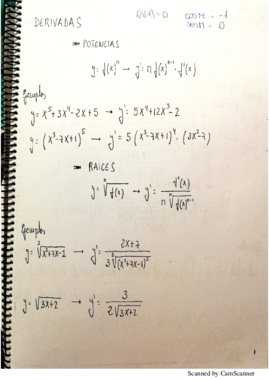 DERIVADAS
cos π = -1
sen π = 0
→ POTENCIAS
y = f(x)ⁿ → y' = n f(x)ⁿ⁻¹ · f'(x)
Ejemplos
y = x⁵ + 3x⁴ - 2x + 5 → y' = 5x⁴ + 12x³ - 2
y = (x³ - 7x + 1)⁵ → y' = 5(x³ - 7x + 1)⁴ · (3x² - 7)
→ RAICES
y = ⁿ√f(x) → y' = f'(x) / n ⁿ√f(x)ⁿ⁻¹
Ejemplos
y = ³√x²+7x-1 → y' = 2x+7 / 3 ³√(x²+7x-1)²
y = √3x+2 → y' = 3 / 2√3x+2
Scanned by CamScanner